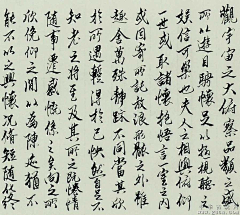 觀宇宙之大俯察品類之盛
所以遊目騁懷足以極視聽之
娛信可樂也夫人之相與俯仰
一世或取諸懷抱悟言一室之內
或因寄所託放浪形骸之外雖
趣舍萬殊靜躁不同當其欣
於所遇蹔得於己怏然自足不
知老之將至及其所之既惓情
隨事遷感慨係之矣向之所
欣俛仰之間以為陳迹猶不
能不以之興懷況脩短隨化終